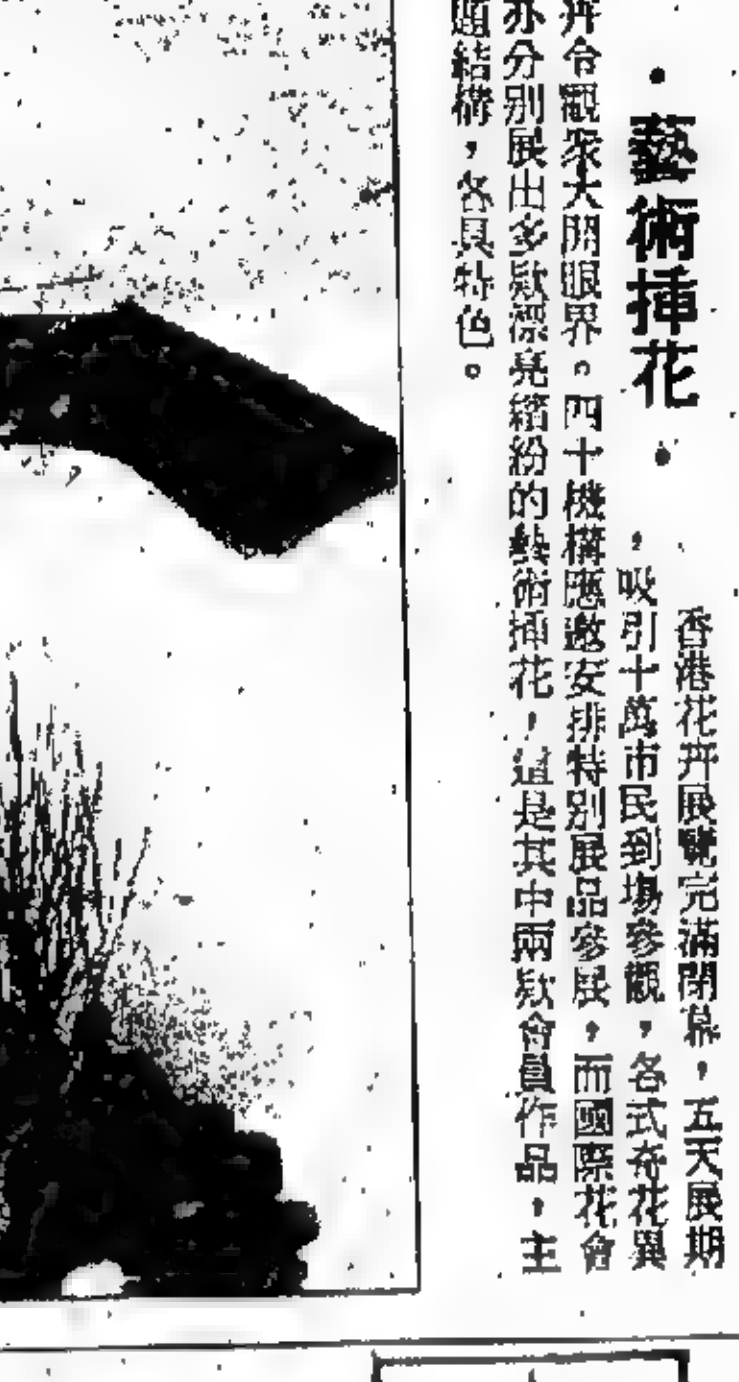 ·藝術揷花·
香港花卉展覽完滿閉幕,五天展期
,吸引十萬市民到場參觀,各式奇花異
卉令觀衆大開眼界。四十機構應邀安排特別展品參展,而國際花會
亦分別展出多款漂亮繽紛的藝術揷花,這是其中兩款會員作品,主
題結構,各具特色。